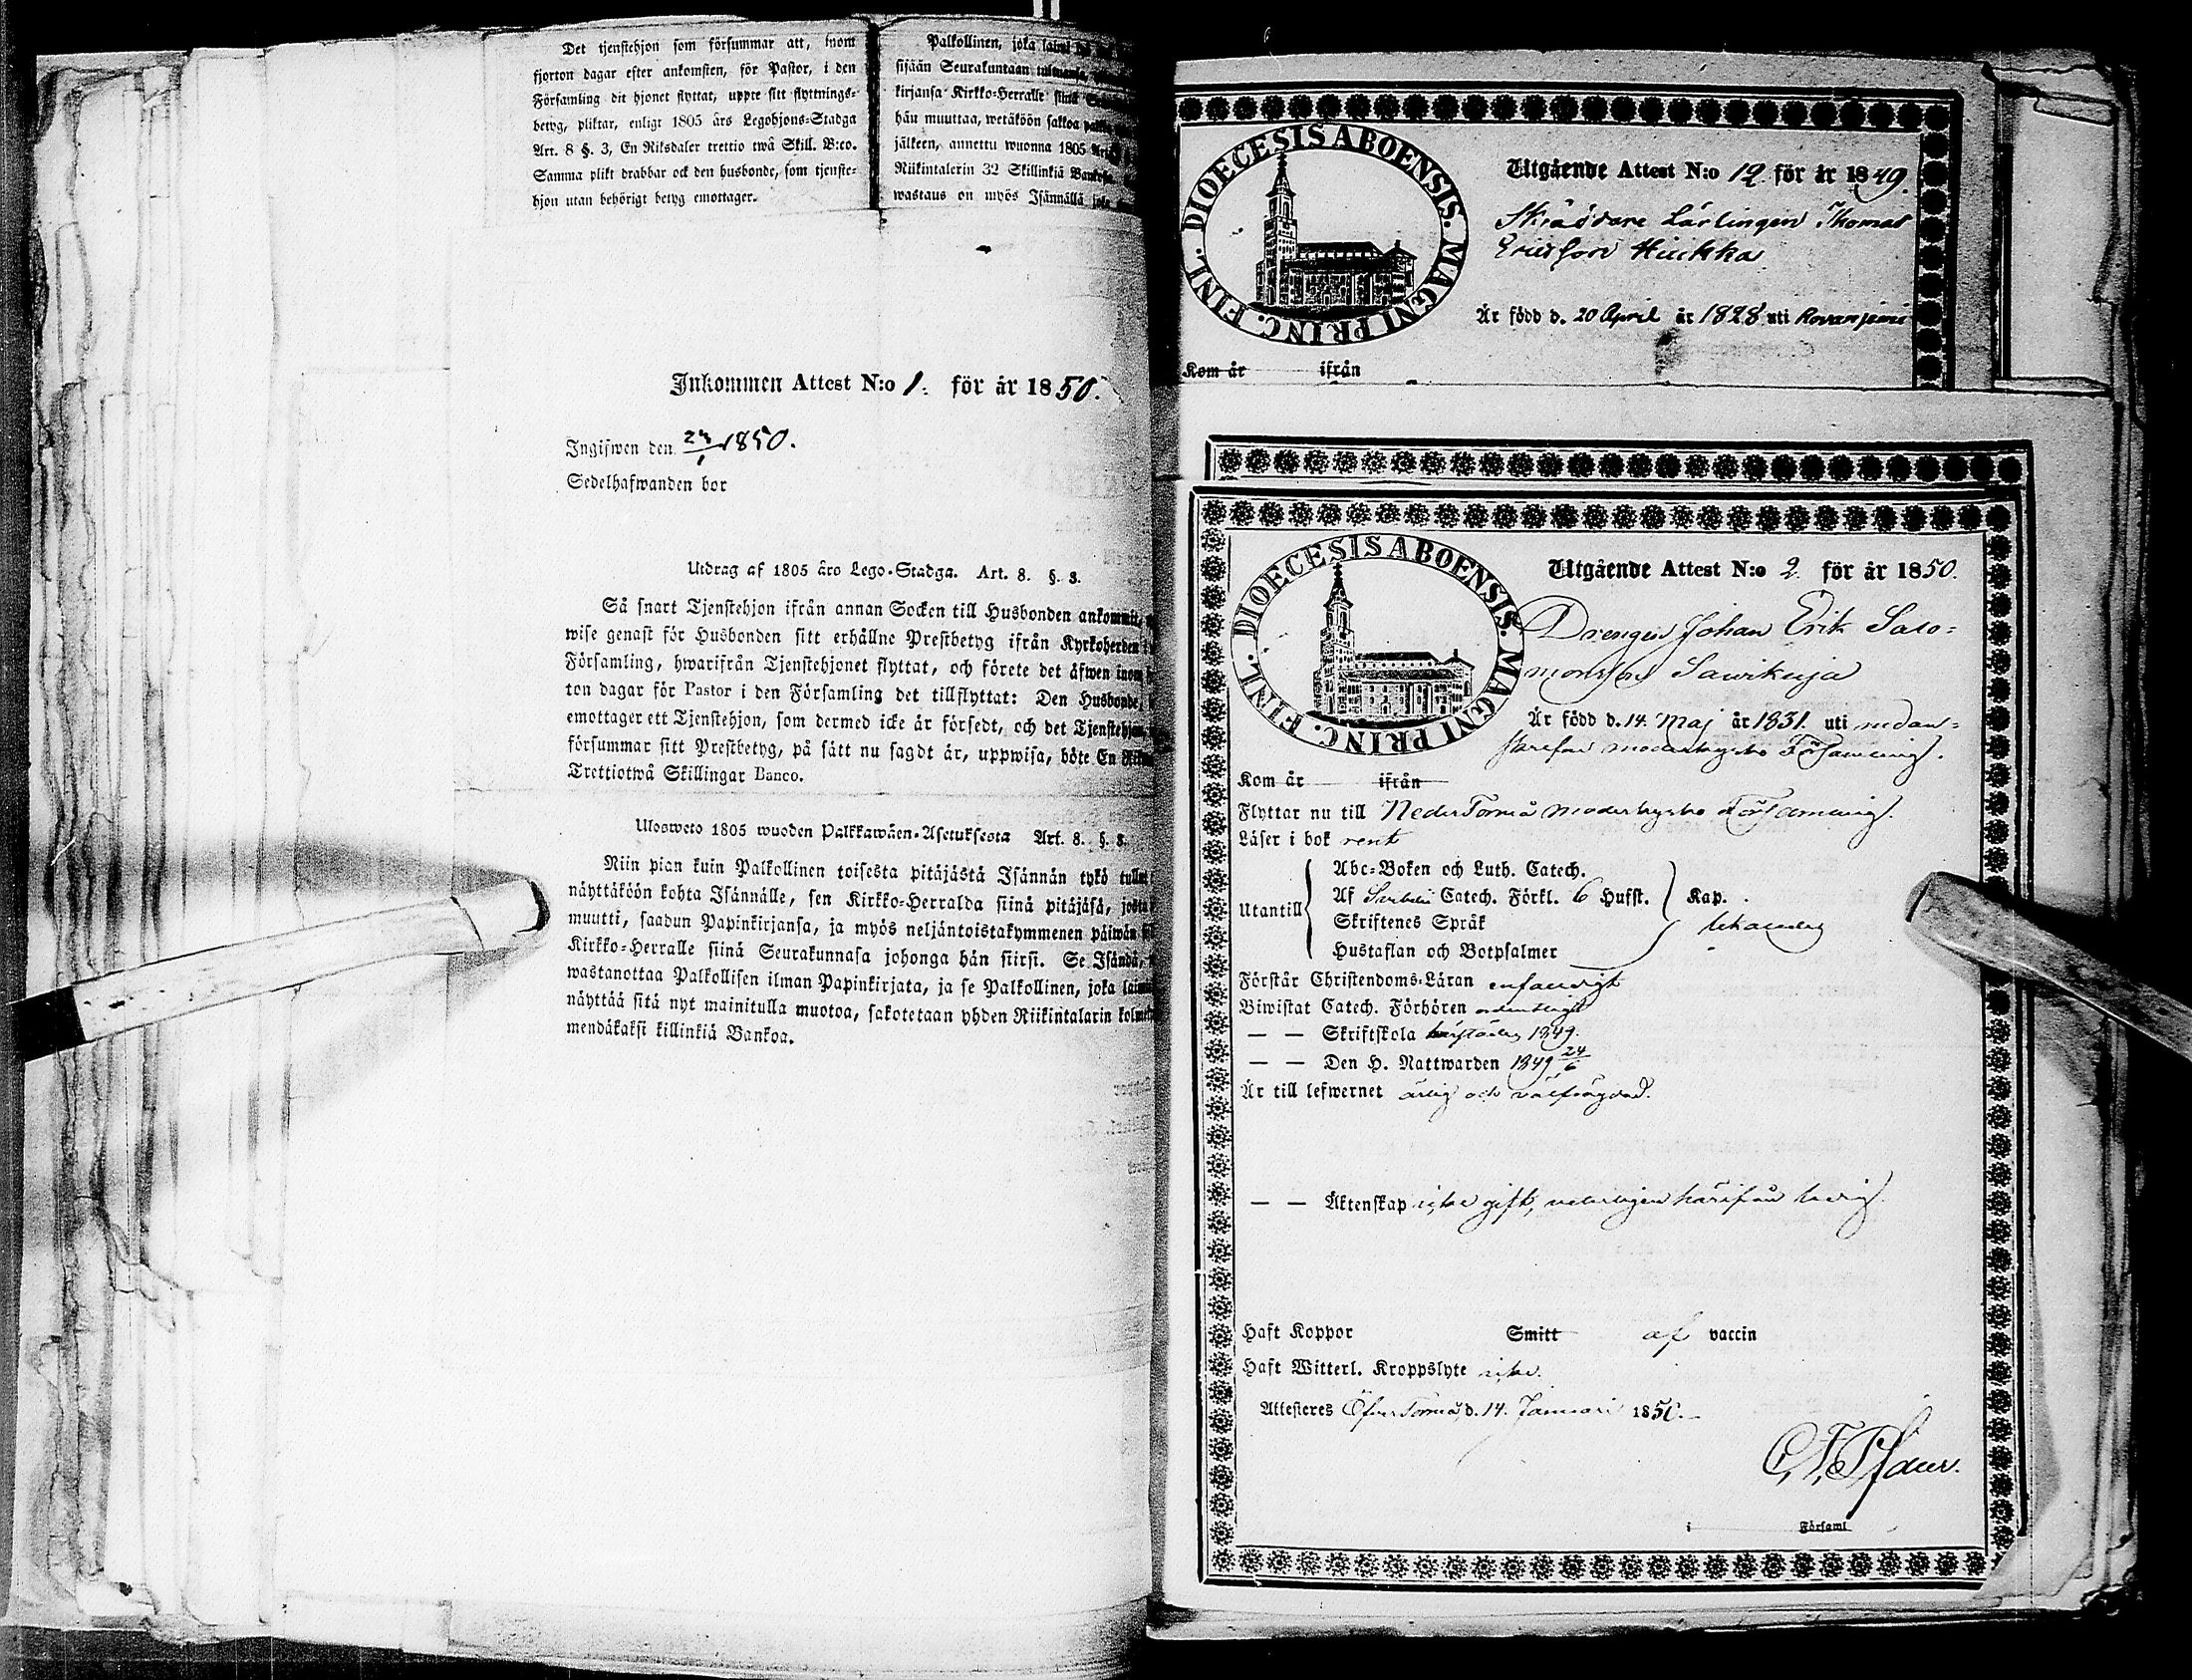 Det tjenstehjon som försummar att, inom
fjorton dagar efter ankomsten, för Pastor, i den
Församling dit hjonet flyttat, uppte sitt flyttnings-
betyg, pliktar, enligt 1805 års Legohjons-Stadga
Art. 8 §. 3, En Riksdaler trettio twå Skill. B:co.
Samma plikt drabbar ock den husbonde, som tjenste-
hjon utan behörigt betyg emottager.
Palkollinen, joka
sijään Seurakuntaan
kirjansa Kirkko-Herralle siinä
hän muuttaa, wetäköön sakkoa
jälkeen, annettu wuonna 1805
Riikintalerin 32 Skillinkiä
wastaus on myös Isännällä
Inkommen Attest N:o 1. för år 1850.
Ingifwen den 23/1 1850.
Sedelhafwanden bor
Utdrag af 1805 års Lego-Stadga. Art. 8. §. 3.
Så snart Tjenstehjon ifrån annan Socken till Husbonden ankommit,
wise genast för Husbonden sitt erhållne Prestbetyg ifrån Kyrkoherden
Församling, hwarifrån Tjenstehjonet flyttat, och förete det äfwen inom
ton dagar för Pastor i den Församling det tillflyttat: Den Husbonde,
emottager ett Tjenstehjon, som dermed icke är försedt, och det Tjenstehjon,
försummar sitt Prestbetyg, på sätt nu sagdt är, uppwisa, böte En
Trettiotwå Skillingar Banco.
Ulosweto 1805 wuoden Palkkawäen-Asetuksesta Art. 8. §. 3.
Niin pian kuin Palkollinen toisesta pitäjästä Isännän tykö
näyttäköön kohta Isännälle, sen Kirkko-Herralda siinä pitäjäsä, josta
muutti, saadun Papinkirjansa, ja myös neljäntoistakymmenen päiwän
Kirkko-Herralle siinä Seurakunnasa johonga hän siirsi. Se Isändä,
wastanottaa Palkollisen ilman Papinkirjata, ja se Palkollinen, joka
näyttää sitä nyt mainitulla muotoa, sakotetaan yhden Riikintalarin
mendäkaksi killinkiä Bankoa.
DIOECESIS ABOENSIS. MAGNI PRINC. FINL.
Utgående Attest N:o 12. för år 1849.
Skräddare Lärlingen Thomas
Ericsson Hiukka
Är född d. 20 April år 1828 uti Rovanjemi
Kom år ifrån
DIOECESIS ABOENSIS. MAGNI PRINC. FINL.
Utgående Attest N:o 2. för år 1850.
Drengen Johan Erik Salo-
monsson
Är född d. 14. Maj år 1831. uti nedan-
moderkyrko Församling.
Kom år ifrån
Flyttar nu till Neder Torneå moderkyrko Församling.
Läser i bok rent
Utantill
Abc-Boken och Luth. Catech.
Af Catech. Förkl. 6 Hufst. Kap.
Skriftenes Språk
Hustaflan och Botpsalmer
Förstår Christendoms-Läran enfaldigt
Biwistat Catech. Förhören ordentligt
— — Skriftskola 1849.
— — Den H. Nattwarden 1849 24/6
Är till lefwernet ärlig och välfrägdad.
— — Äktenskap icke gift, härifrån ledig.
Haft Koppor Smitt af vaccin
Haft Witterl. Kroppslyte icke.
Attesteres Öfver Torneå d. 14. Januari 1850.
i Församl